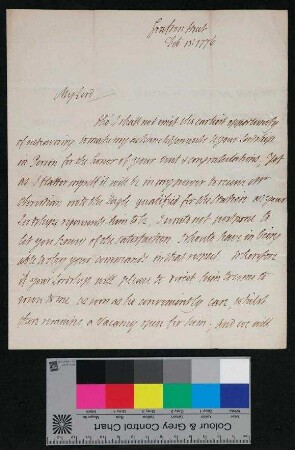 Feb 1st 1776
My Lord
Tho' I shall not omit the earliest opportunity
of returning to make my acknowledgements to your Lordship
in Person for the honor of your and congratulations, yet
as I flatter myself it will be in my power to Mr
with the qualified for the Station as your
Lordship represents him to be, I would not postpone to
let you know of the satisfaction I should have in being
able to obey your commands in that respect. Wherefore
if your Lordship will please to direct him to come to
town to me as soon as he conveniently can, whilst
there remains a Vacancy open for him, and we will
Colour & Grey Control Chart
Blue
Cyan
Green
Yellow
Red
Magenta
White
Black